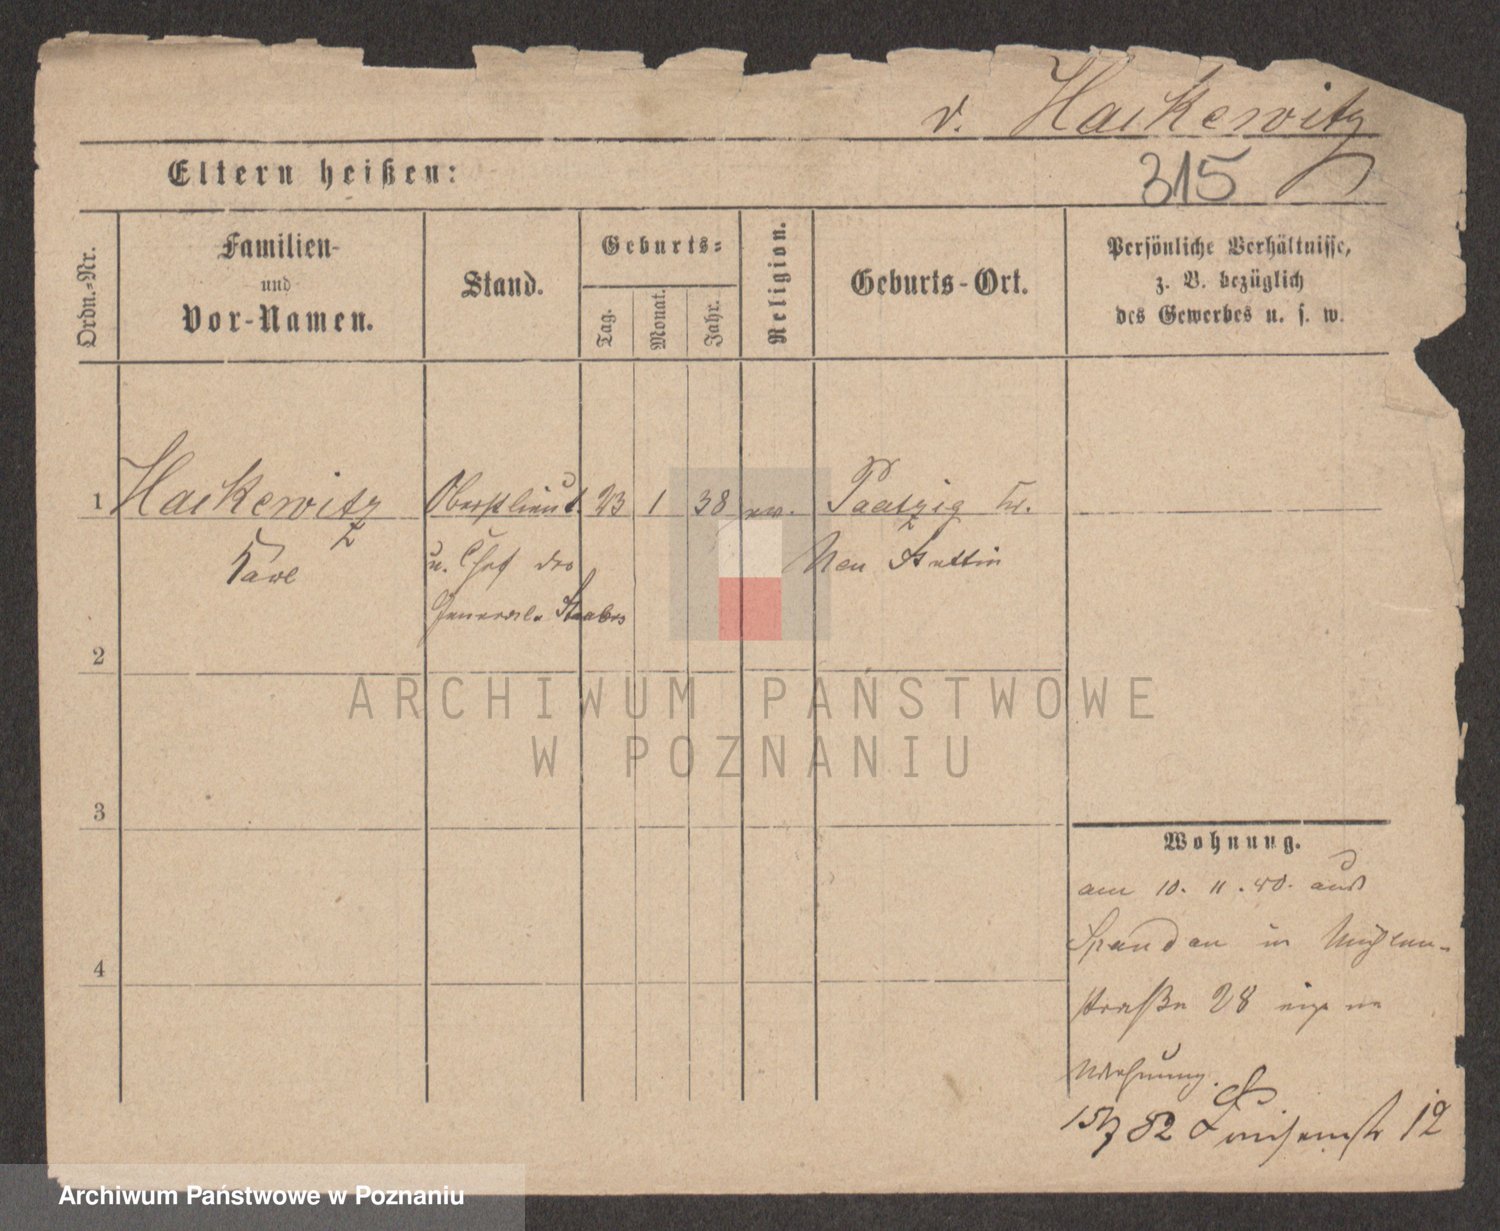 v. Hackewitz
315
Eltern heißen:
Ordn.-Nr.
Familien-
und
Vor-Namen.
Stand.
Geburts-
Tag.
Monat.
Jahr.
Religion.
Geburts-Ort.
Persönliche Verhältnisse,
z. B. bezüglich
des Gewerbes u. s. w.
1 Hackewitz Oberstlieut. 23 1 38 ev. Paatzig Kr.
Karl u. Chef des Neu Stettin
General-Stabes
2
ARCHIWUM PAŃSTWOWE
W POZNANIU
3
4
Wohnung.
am 10. 11. 80. aus
Spandau in Mühlen-
straße 28 eigene
Wohnung.
15/7 82 Louisenstr 12
Archiwum Państwowe w Poznaniu